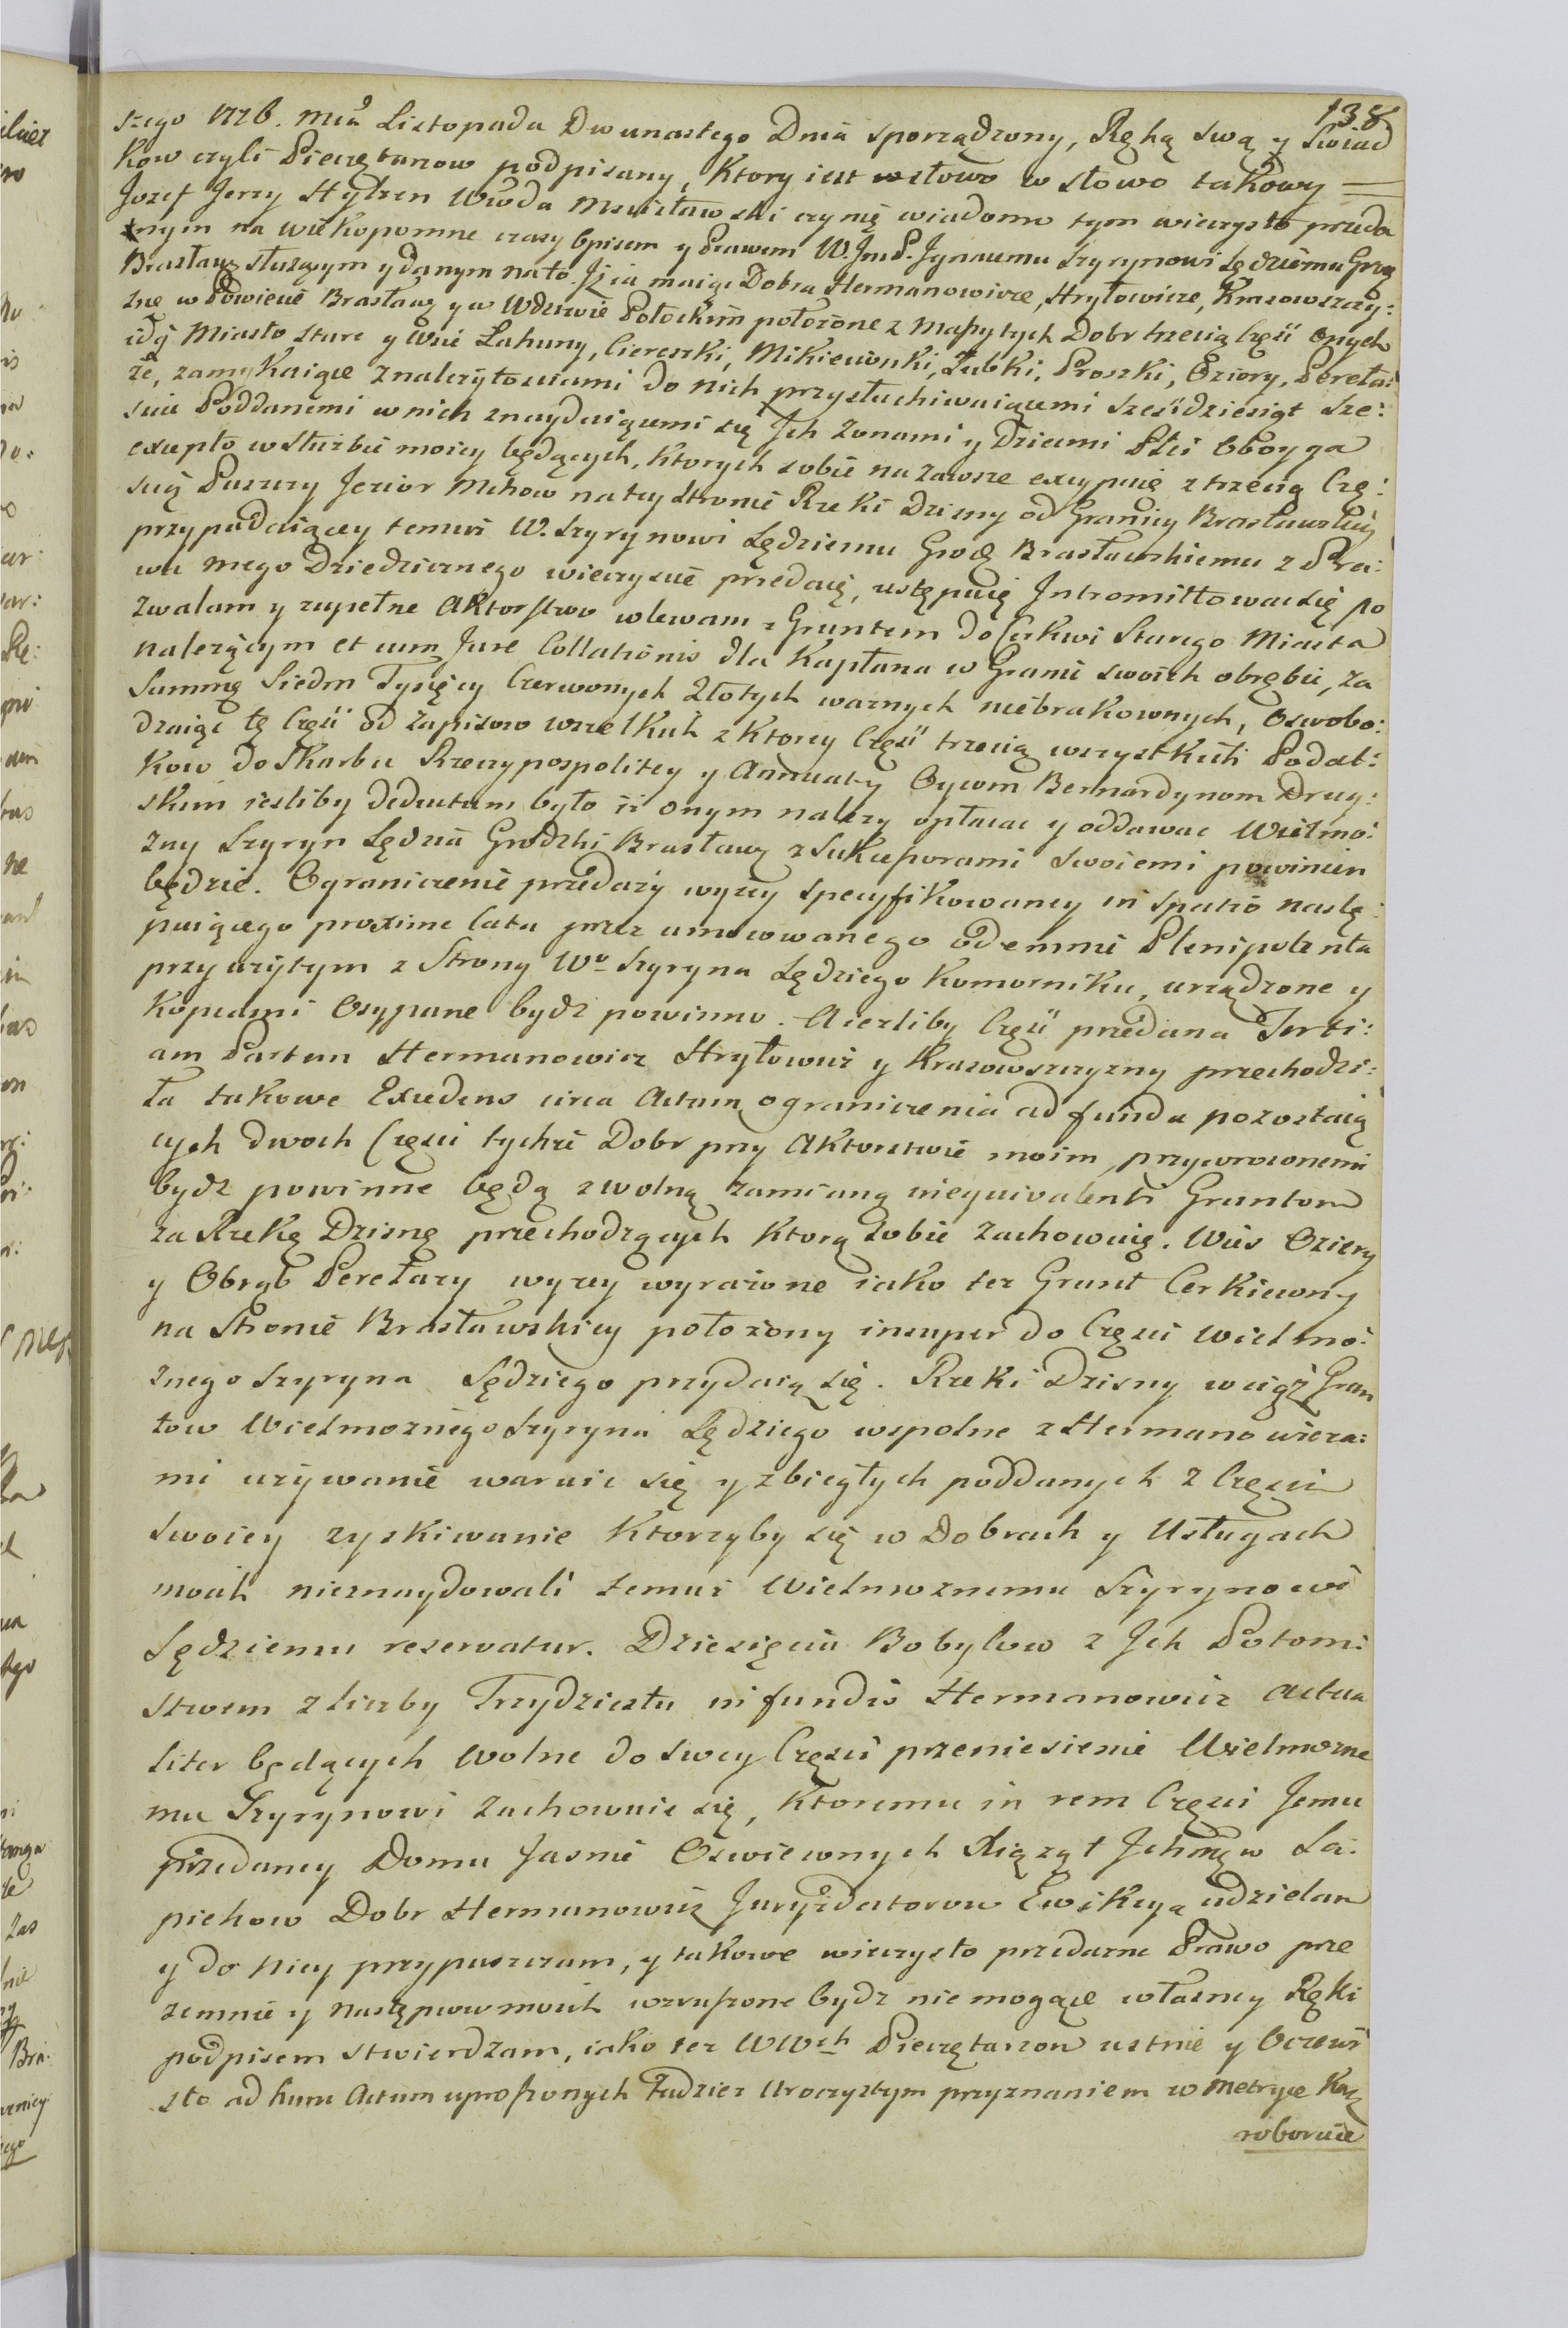 138
szego 1776. Mca Listopada Dwunastego Dnia sporządzony, Ręką swą y Swiad
kow czyli Pieczętarzow podpisany, Ktory iest w słowo w słowo takowy =
Jozef Jerzy Hylzen Wwoda Mscisławski czynię wiadomo tym wieczysto przeda
znym na wiekopomne czasy Opisem y Prawem W. Jm P. Jgnacemu Szyrynowi Sędziemu Grog
Brasław służącym y danym na to. Jż ia maiąc Dobra Hermanowicze, Hryłowicze, Krasowszczy:
znę w Powiecie Brasław y w Wdztwie Połockim położone z Massy tych Dobr trzecią Częsc onych
idq Miasto stare y Wsie Łahuny, Ciereszki, Mikiecionki, Zubki, Proszki, Oziory, Pereła:
ze, zamykaiące z należytosciami do nich przysłuchiwaiącemi szescdziesiąt sze:
sciu Poddanemi w nich znayduiącemi się Jch żonami y Dziecmi Płci Oboyga
excepto w służbie moiey będących, ktorych sobie na zawsze excypuię z trzecią Czę:
scią Puszczy Jezior Mchow na tey stronie Rzeki Dzisny od Granicy Brasławskiey
przypadaiącey temuż W. Szyrynowi Sędziemu Grodz Brasławskiemu z Pra:
wa mego Dziedzicznego wieczyscie przedaię, ustępuię Jntromittować się po
zwalam y zupełne Aktorstwo wlewam z Gruntem do Cerkwi Starego Miasta
należącym et cum Jure Collationis dla Kapłana w Granic swoich obrębie, za
Summę Siedm Tysięcy Czerwonych Złotych ważnych niebrakownych, oswobo:
dzaiąc tę Częsc od zapisow wszelkich z ktorey Częsc trzecią wszystkich Podat:
kow do Skarbu Rzeczypospolitey y Annuaty Oycom Bernardynom Druy:
skim iesliby deductum było iż onym należy opłacac y oddawac Wielmo:
żny Szyryn Sędzia Grodzki Brasław z Sukcessorami swoiemi powinien
będzie. Ograniczenie przedaży wyżey specyfikowaney in spatio nastę:
puiącego proxime lata przez umocowanego odemnie Plenipotenta
przy użytym z Strony Wo Szyryna Sędziego Komorniku, urządzone y
Kopcami Osypane bydz powinno. A iezliby Częsc przedana Terti:
am Partem Hermanowicz Hryłowicz y Krasowszczyzny przechodzi:
ła takowe Excedens circa Actum ograniczenia ad funda pozostaią
cych dwoch Częsci tychże Dobr przy Aktorstwie moim, przywroconemi
bydz powinne będą z wolną zamianą in equivalenti Gruntow
za Rzekę Dzisnę przechodzących ktorą sobie zachowuię. Wies Oziery
y Obręb Perełazy wyżey wyrażone iako też Grunt Cerkiewny
na Stronie Brasławskiey położony insuper do Częsci Wielmo:
żnego Szyryna Sędziego przydaią się. Rzeki Dzisny wciąż Grun
tow Wielmożnego Szyryna Sędziego wspolne z Hermanowicza:
mi używanie waruie się y zbiegłych poddanych z Częsci
swoiey zyskiwanie ktorzyby się w Dobrach y Usługach
moich nieznaydowali temuż Wielmożnemu Szyrynowi
Sędziemu reservatur. Dziesięciu Bobylow z Jch Potom:
stwem z liczby Trzydziestu in fundis Hermanowicz actua
liter będących wolne do swey Częsci przeniesienie Wielmożne
mu Szyrynowi zachowuie się, ktoremu in rem Częsci Jemu
przedaney Domu Jasnie Oswieconych Xiąząt Jchmcw Sa:
piehow Dobr Hermanowicz Juryzdatorow Ewikcyą udzielam
y do niey przypuszczam, y takowe wieczysto przedazne Prawo prze
zemnie y następcow moich wzruszone bydz nie mogące własney Ręki
podpisem stwierdzam, iako też WWch Pieczętarzow ustnie y Oczewi
sto ad hunc Actum uproszonych Tudzież Uroczystym przyznaniem w Metryce Kor
roboruię